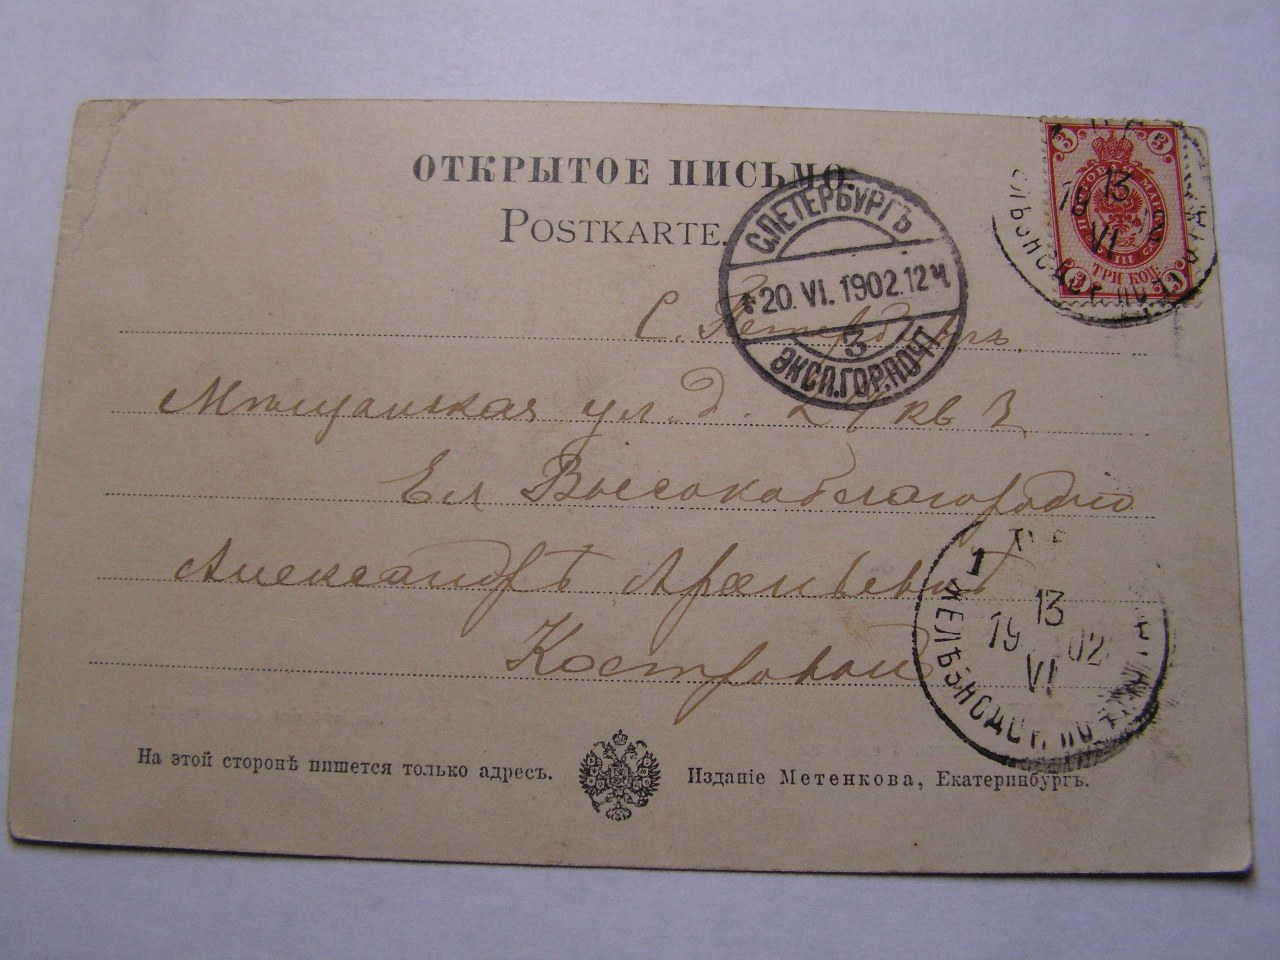 ОТКРЫТОЕ ПИСЬМО.
POSTKARTE.
С.ПЕТЕРБУРГЪ
20. VI. 1902. 12 Ч.
3
ЭКСП. ГОР. ПОЧТ
3 3
ТРИ КОП.
13
VI
С. Петербургъ
Мѣщанская ул. д. 27 кв 3
Ея Высокоблагородію
Александрѣ Арсеньевнѣ
Костровой
1
13
19 02
VI
ЖЕЛѢЗНОДОР. ПОЧТ
На этой сторонѣ пишется только адресъ.
Изданіе Метенкова, Екатеринбургъ.